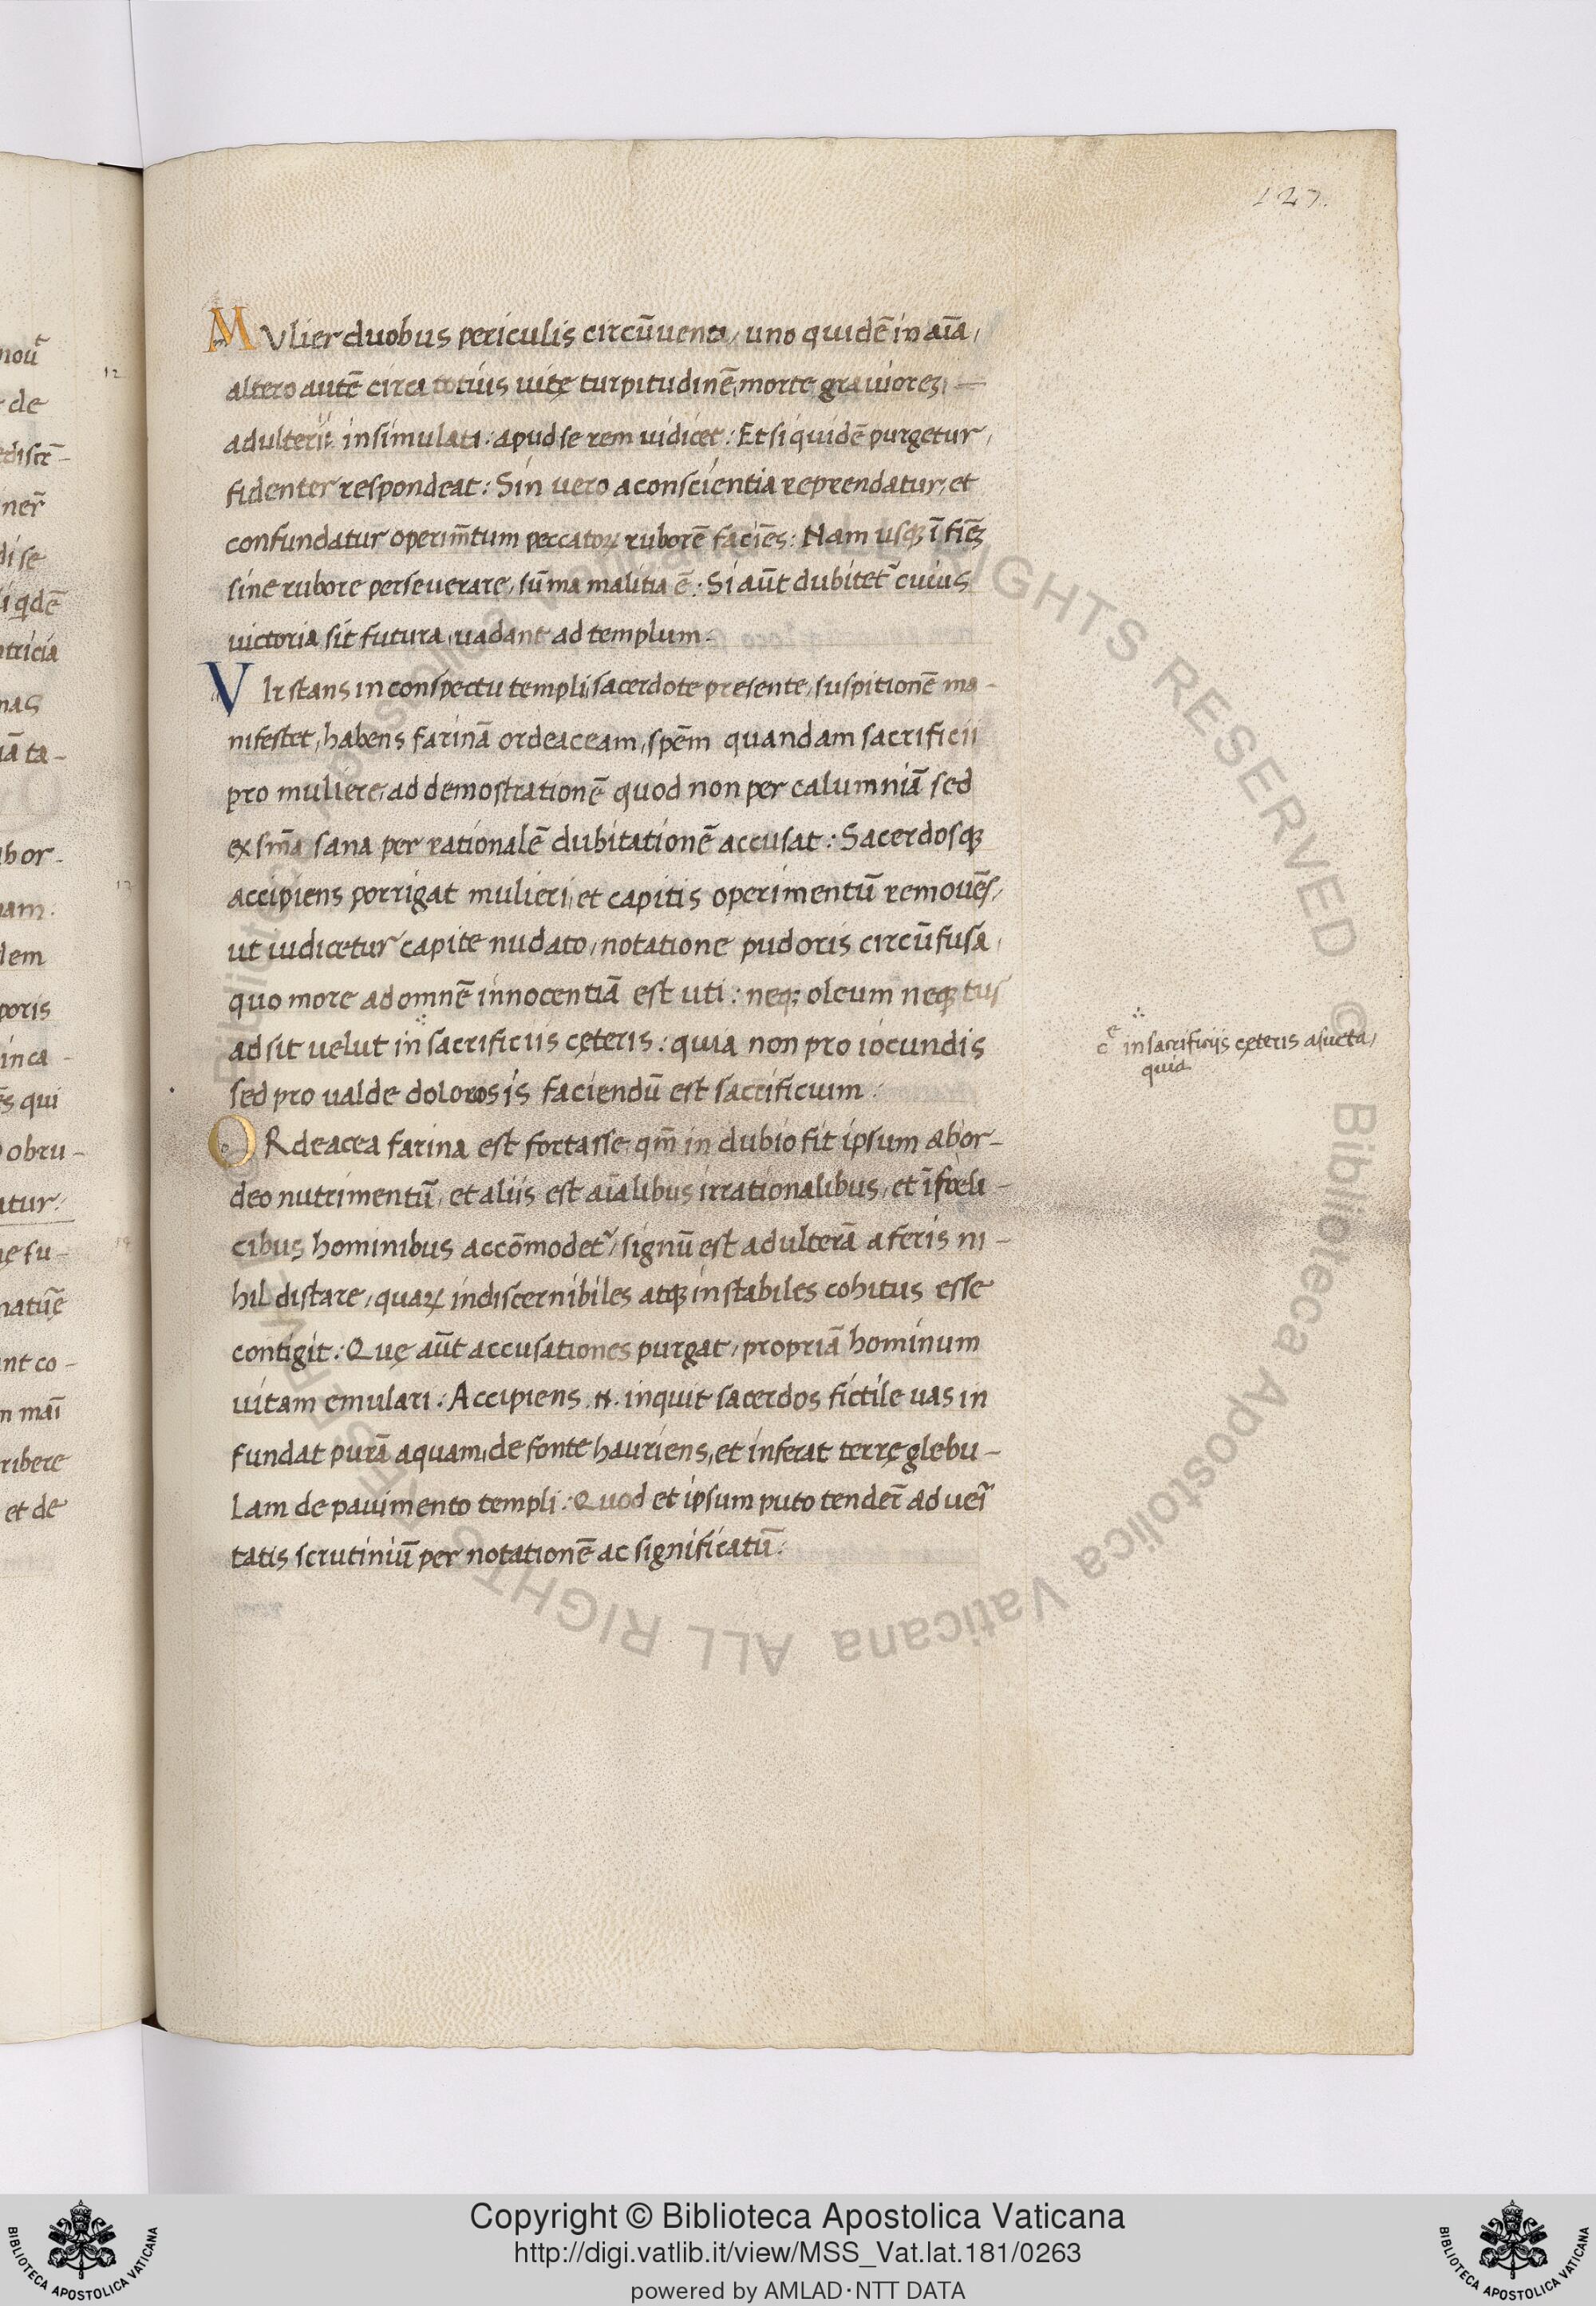 127.
MVlier duobus periculis circũuenta, uno quidẽ in aĩa,
altero autẽ circa totius uitę turpitudinẽ, morte grauiorez, —
adulterii insimulata: apud se rem iudicet: Et si quidẽ purgetur,
fidenter respondeat: Sin uero a conscientia reprendatur, et
confundatur operim̃tum peccatoꝝ ruborẽ faciẽs: Nam usqꝫ ĩ fiẽꝫ
sine rubore perseuerare, sũma malitia ẽ: Si aũt dubitet᷑ cuius
uictoria sit futura, uadant ad templum.
VIr stans in conspectu templi, sacerdote presente, suspitionẽ ma-
nifestet, habens farinã ordeaceam, spẽm quandam sacrificii
pro muliere, ad demostrationẽ quod non per calumniã sed
ex sm̃a sana per rationalẽ dubitationẽ accusat: Sacerdosqꝫ
accipiens porrigat mulieri, et capitis operimentũ remouẽs,
ut iudicetur capite nudato, notatione pudoris circũfusa,
quo more ad omnẽ innocentiã est uti: neqꝫ oleum neqꝫ tus
adsit uelut in sacrificiis cęteris: quia non pro iocundis
sed pro ualde dolorosis faciendũ est sacrificium:
ORdeacea farina est fortasse, qm̃ in dubio fit ipsum ab or-
deo nutrimentũ, et aliis est aĩalibus irrationalibus, et ĩfœli-
cibus hominibus accõmodet᷑, signũ est adulterã a feris ni-
hil distare, quaꝝ indiscernibiles atqꝫ instabiles cohitus esse
contigit: Quę aũt accusationes purgat, propriã hominum
uitam emulari: Accipiens .N. inquit sacerdos fictile uas in
fundat purã aquam, de fonte hauriens, et inferat terrę glebu-
lam de pauimento templi: Quod et ipsum puto tender̃ ad uer̃i
tatis scrutiniũ per notationẽ ac significatũ:
cͤ in sacrificiis cęteris asueta,
quia
Copyright © Biblioteca Apostolica Vaticana
http://digi.vatlib.it/view/MSS_Vat.lat.181/0263
powered by AMLAD·NTT DATA